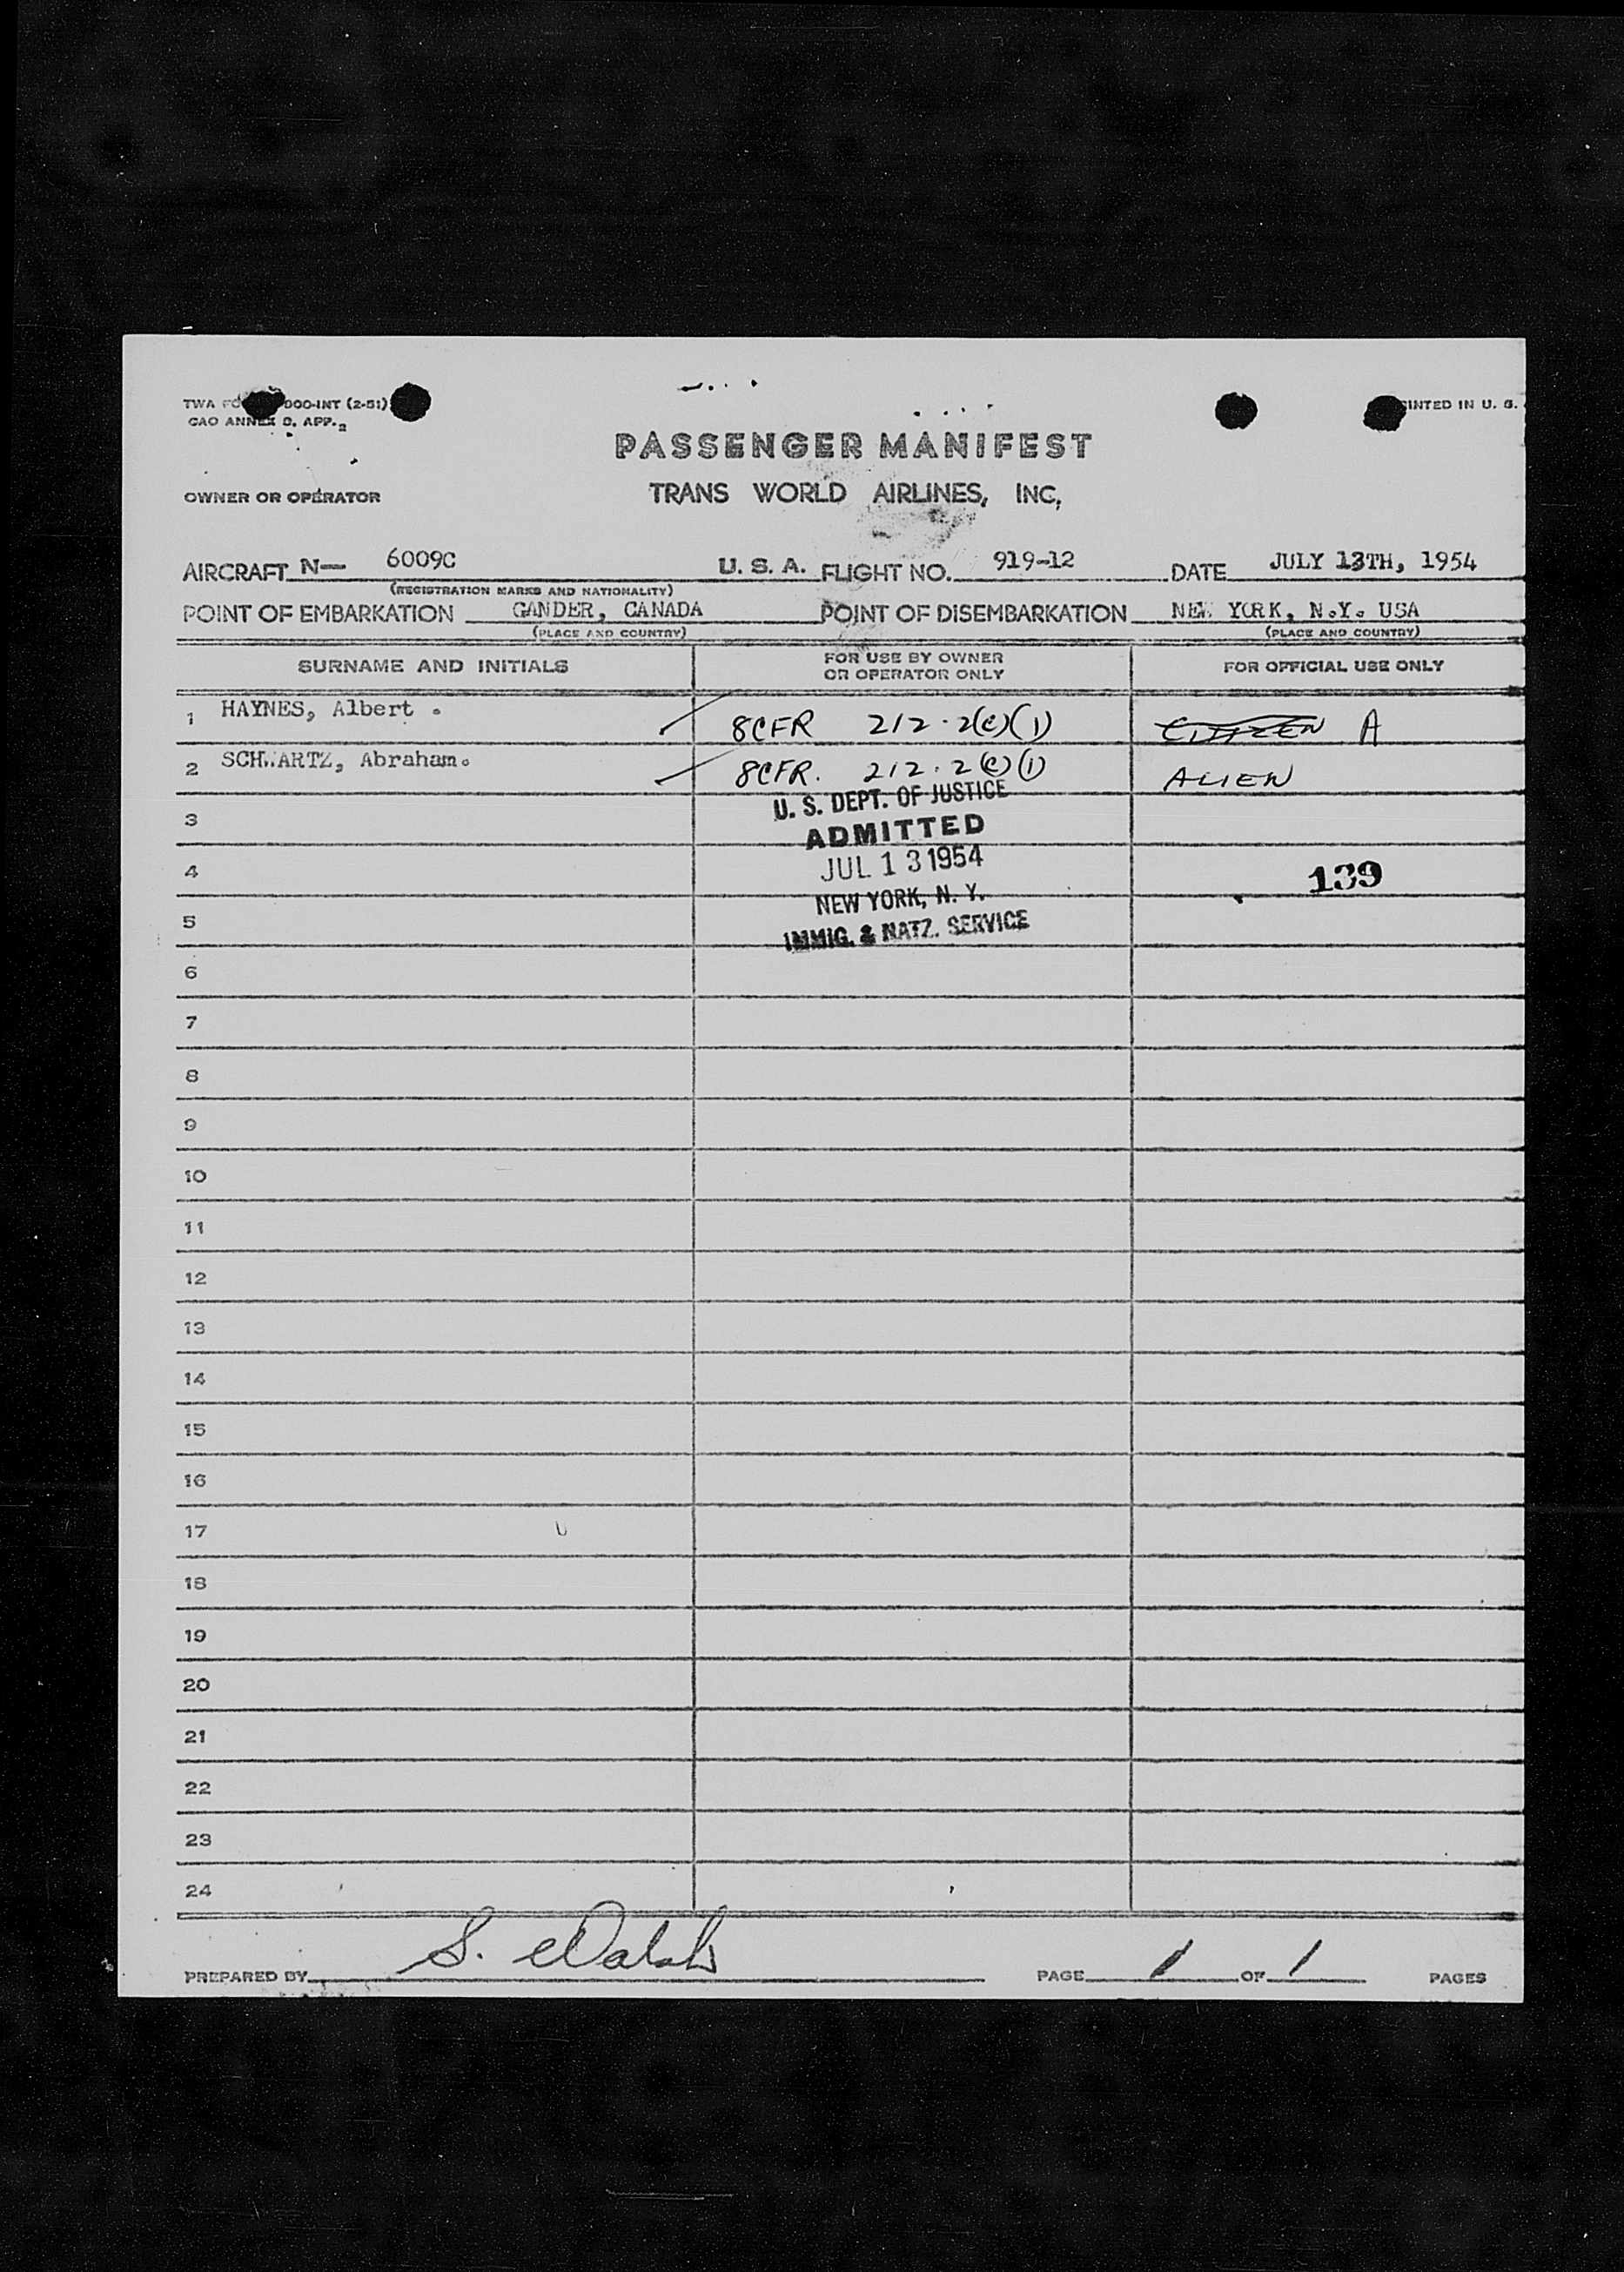 TWA FO 000-INT (2-51)
CAO ANNEX D. APP. 2
INTED IN U. S.
PASSENGER MANIFEST
OWNER OR OPERATOR TRANS WORLD AIRLINES, INC,
AIRCRAFT N— 6009C U. S. A. FLIGHT NO. 919-12 DATE JULY 13TH, 1954
(REGISTRATION MARKS AND NATIONALITY)
POINT OF EMBARKATION GANDER, CANADA POINT OF DISEMBARKATION NEW YORK, N.Y. USA
(PLACE AND COUNTRY) (PLACE AND COUNTRY)
SURNAME AND INITIALS FOR USE BY OWNER OR OPERATOR ONLY FOR OFFICIAL USE ONLY
1 HAYNES, Albert . 8CFR 212.2(c)(1) CITIZEN A
2 SCHWARTZ, Abraham. 8CFR. 212.2(c)(1) ALIEN
U. S. DEPT. OF JUSTICE
3
ADMITTED
4 JUL 13 1954 139
NEW YORK, N. Y.
5
IMMIG. & NATZ. SERVICE
6
7
8
9
10
11
12
13
14
15
16
17
18
19
20
21
22
23
24
PREPARED BY S. Walsh PAGE 1 OF 1 PAGES